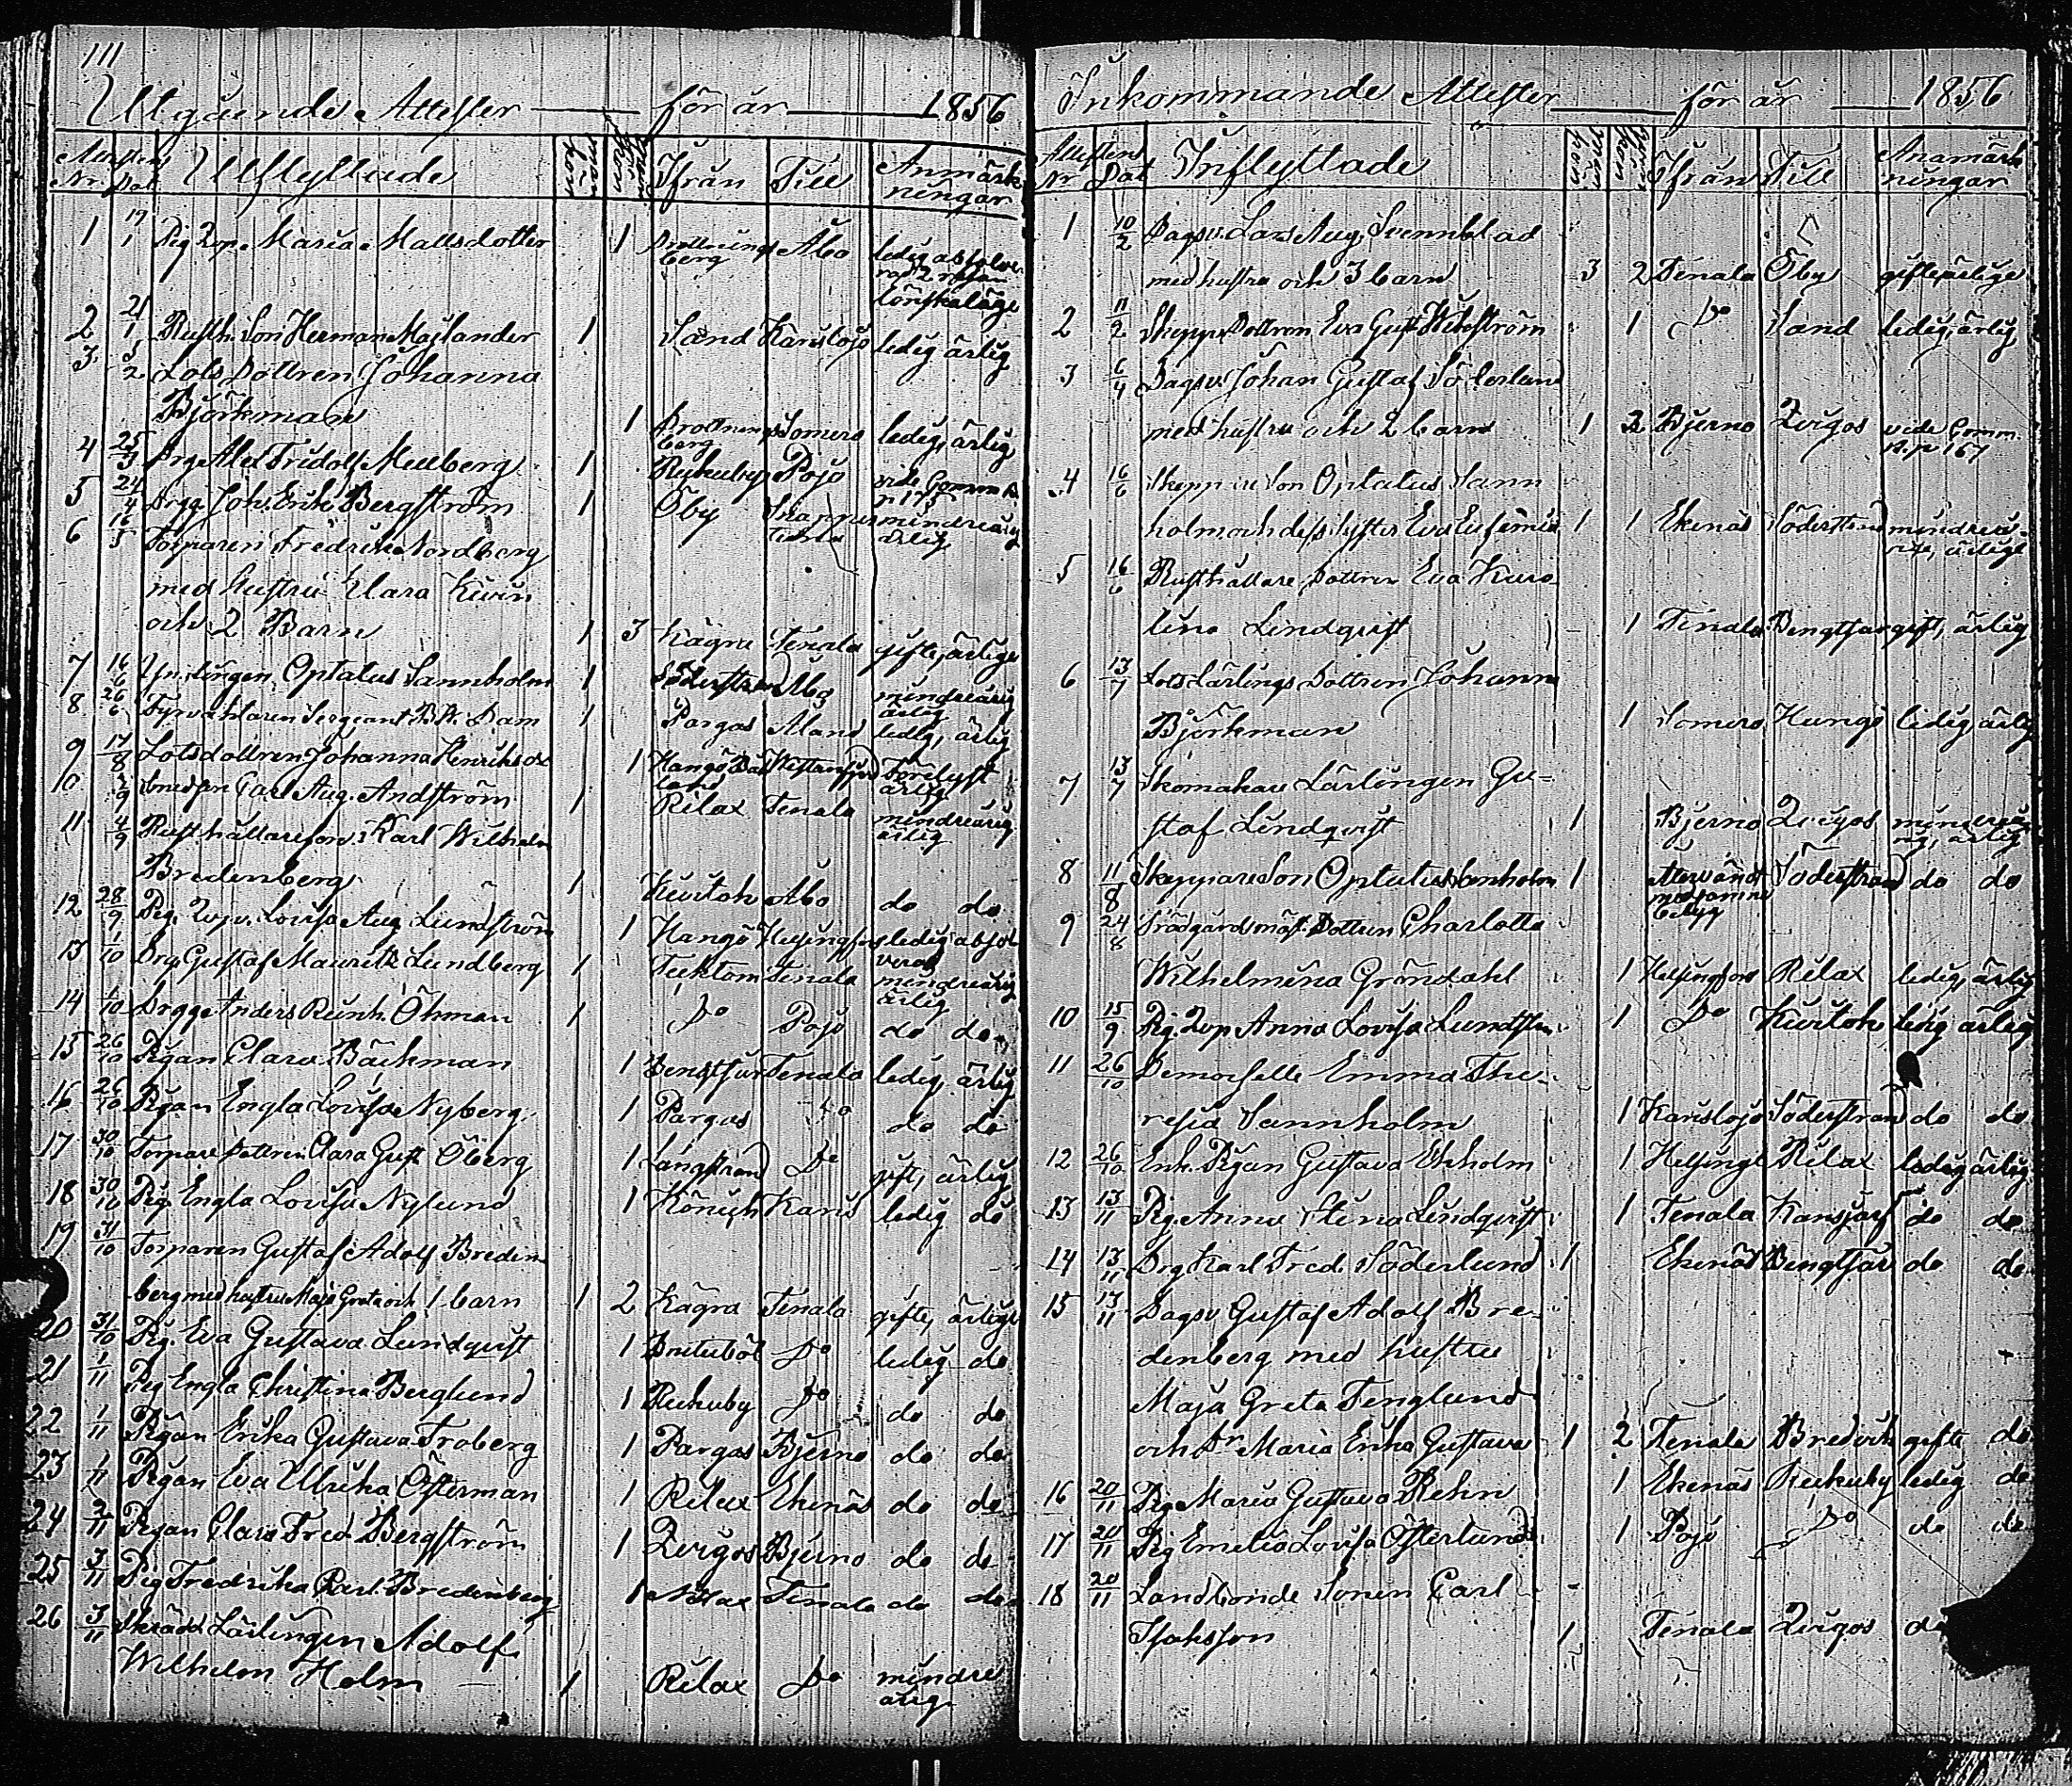 111
Utgående Attester för år 1856
Attesten Nr Dat Utflyttade man kön Ifrån Till Anmärkningar
1 19/1 Pig. Maria Mattsdotter 1 Drottningberg Åbo ledig
2 21/1 Rusth. Son Herman 1 Sand Karislojo ledig ärlig
3 /2 Lots Dottren Johanna
Björkman 1 Drottningberg Somero ledig, ärlig
4 25/3 Drg Alex Fridolf Mellberg 1 Rukuby Pojo vide Comm. B. p 175
5 24/4 Drgg. Joh. Erik Bergström 1 Öby mindreårig ärlig
6 16/5 Torparen Fredrik Nordberg
med hustru Clara
och 2 Barn 1 3 Kägra Tenala gifte, ärlige
7 16/6 Ynglingen Optatus Sannholm 1 Söderstrand Åbo mindreårig ärlig
8 26/6 Sergeant Dam 1 Pargas Åland ledig, ärlig
9 17/8 Lotsdottren Johanna Henriksd. 1 Hangö ärlig
10 /9 Carl Aug. Andström 1 Rilax Tenala mindreårig ärlig
11 4/9 Rusthållareson Karl Wilhelm
Bredenberg 1 Åbo do do
12 28/9 Pig. Lovisa Aug Lundström 1 Hangö Helsingfors ledig
13 1/10 Drg Gustaf Mauritz Lundberg 1 Tecktom Tenala mindreårig ärlig
14 1/10 Drgg Anders Reinh. Öhman 1 Do Pojo do do
15 26/10 Pigan Clara Bäckman 1 Bengtsar Tenala ledig, ärlig
16 26/10 Pigan Engla Lovisa Nyberg 1 Pargas Do do do
17 30/10 Torpare Dottren Clara Gust Öberg 1 Långstrand Do gift, ärlig
18 30/10 Pig. Engla Lovisa Nylund 1 Karis ledig do
19 31/10 Torparen Gustaf Adolf Breden-
berg med hustru Maja Greta och 1 barn 1 2 Kägra Tenala gifte, ärlige
20 31/10 Pig. Eva Gustava Lundqvist 1 Do ledig do
21 1/11 Pig Engla Christina Berglund 1 Rukuby Do do do
22 1/11 Pigan Erika Gustava Froberg 1 Pargas Bjerno do do
23 1/11 Pigan Eva Ulrika Österman 1 Rilax Ekenäs do do
24 2/11 Pigan Clara Fred Bergström 1 Zvigos Bjerno do do
25 3/11 Pig Fredrika Carl. Bredenberg 1 Rilax Tenala do do
26 3/11 Skrädd Lärlingen Adolf
Wilhelm Holm 1 Rilax Do mindreårig
Inkommande Attester för år 1856
Attesten Nr Dat Inflyttade Ifrån Till Anmärkningar
1 10/2 Dagsv. Lars Aug. Svennblad
med hustru och 3 barn 3 2 Tenala Öby gifte, ärlige
2 11/2 Skepps Dottren Eva Gust 1 Do Sand ledig, ärlig
3 6/4 Dagsv. Johan Gustaf Söderlund
med hustru och 2 barn 1 2 Bjerno Zvigos vide Comm. B. p 167
4 16/6 Skeppare Son Optatus Sann
holm och dess syster Eva Eufemia 1 1 Ekenäs Söderstrand mindreårige, ärlige
5 16/6 Rusthållare Dottren Eva Karo
lina Lindqvist 1 Tenala Bengtsar gift, ärlig
6 13/7 Lots Lärlings Dottren Johanna
Björkman 1 Somero Hangö ledig ärlig
7 13/7 Skomakare Lärlingen Gu=
staf Lindqvist 1 Bjerno Zvigos mindreårig, ärlig
8 11/8 Skeppare Son Optatus Sannholm 1 Återvändt med samma betyg Söderstrand do do
9 24/8 Trädgårdsmäst. Dottren Charlotta
Wilhelmina Gröndahl 1 Helsingfors Rilax ledig, ärlig
10 15/9 Pig. Anna Lovisa Lundström 1 Do ledig ärlig
11 26/10 Demoiselle Emma The-
resia Sannholm 1 Karislojo Söderstrand do do
12 26/10 Enk. Pigan Gustava Ekholm 1 Helsinge Rilax ledig ärlig
13 13/11 Pig. Anna Stina Lindqvist 1 Tenala do do
14 13/11 Drg Karl Fred. Söderlund 1 Ekenäs Bengtsar do do
15 13/11 Dagsv Gustaf Adolf Bre-
denberg med hustru
Maja Greta Fenglund
och Dr Maria Erika Gustava 1 2 Tenala Bredvik gifte do
16 20/11 Pig. Maria Gustava Rehn 1 Ekenäs Rukuby ledig do
17 20/11 Pig Emelia Lovisa Österlund 1 Pojo Do do do
18 20/11 Landbonde Sonen Carl
Isaksson 1 Tenala Zvigos do